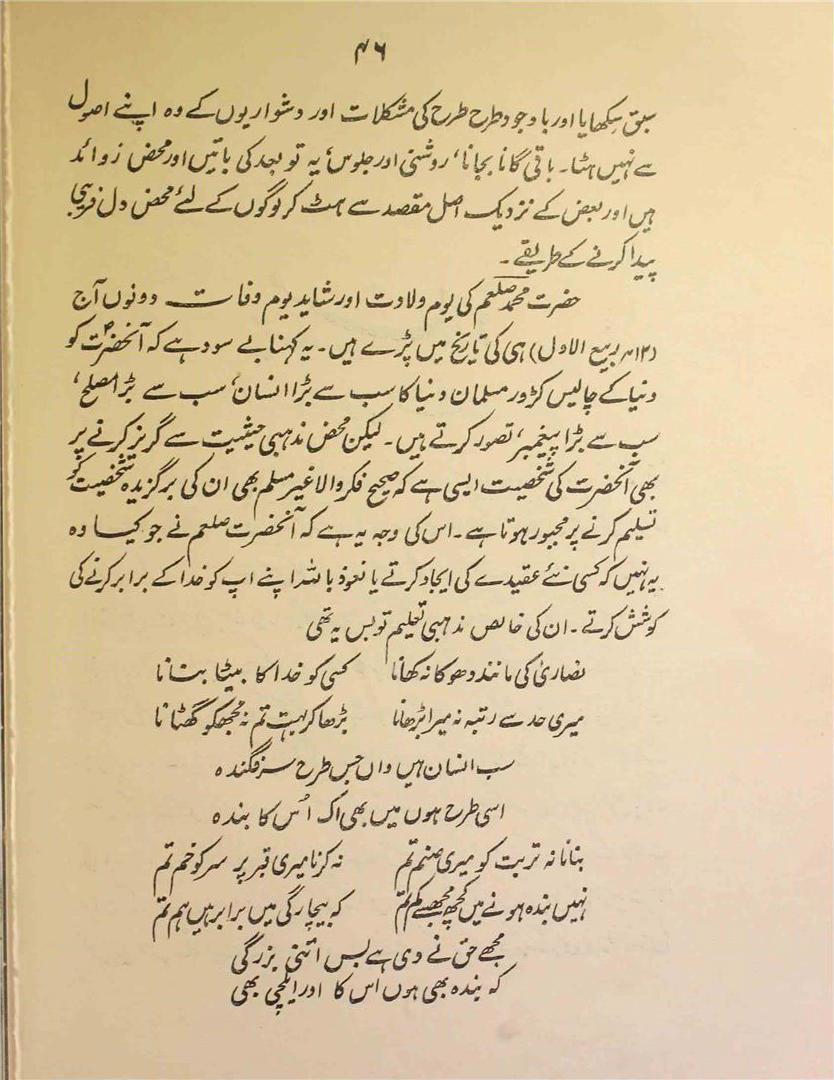 ۴۶
سبق سکھایا اور باوجود طرح طرح کی مشکلات اور دشواریوں کے وہ اپنے اصول
سے نہیں ہٹا۔ باقی گانا بجانا، روشنی اور جلوس، یہ تو بعد کی باتیں اور محض زوائد
ہیں اور بعض کے نزدیک اصل مقصد سے ہٹ کر لوگوں کے لئے محض دل فریبی
پیدا کرنے کے طریقے۔
حضرت محمد صلعم کی یوم ولادت اور شاید یوم وفات دونوں آج
(۱۲؍ ربیع الاول) ہی کی تاریخ میں پڑے ہیں۔ یہ کہنا بے سود ہے کہ آنحضرتؐ کو
دنیا کے چالیس کڑور مسلمان دنیا کا سب سے بڑا انسان، سب سے بڑا مصلح،
سب سے بڑا پیغمبر، تصور کرتے ہیں۔ لیکن محض مذہبی حیثیت سے گریز کرنے پر
بھی آنحضرت کی شخصیت ایسی ہے کہ صحیح فکر والا غیر مسلم بھی ان کی برگزیدہ شخصیت کو
تسلیم کرنے پر مجبور ہوتا ہے۔ اس کی وجہ یہ ہے کہ آنحضرت صلعم نے جو کیا وہ
یہ نہیں کہ کسی نئے عقیدے کی ایجاد کرتے یا نعوذ باللہ اپنے اپ کو خدا کے برابر کرنے کی
کوشش کرتے۔ ان کی خالص مذہبی تعلیم تو بس یہ تھی
نصاریٰ کی مانند دھوکا نہ کھانا کسی کو خدا کا بیٹا بنانا
میری حد سے رتبہ نہ میرا بڑھانا بڑھا کر بہت تم نہ مجھکو گھٹانا
سب انسان ہیں واں جس طرح سرفگندہ
اسی طرح ہوں میں بھی اک اُس کا بندہ
بنانا نہ تربت کو میری صنم تم نہ کرنا میری قبر پر سر کو خم تم
نہیں بندہ ہونے میں کچھ مجھسے کم تم کہ بیچارگی میں برابر ہیں ہم تم
مجھے حق نے دی ہے بس اتنی بزرگی
کہ بندہ بھی ہوں اس کا اور ایلچی بھی